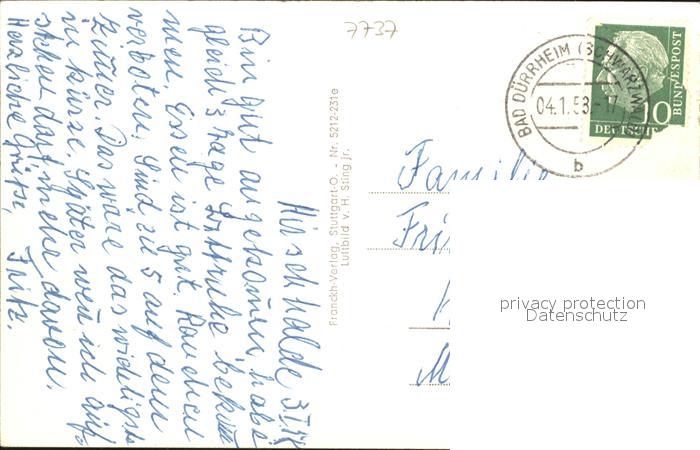 7737
Hirschhalde 3.I.58
Bin gut angekommen, habe
gleich 3 Tage Bettruhe bekom
men. Essen ist gut. Rauchen
verboten. Sind zu 5 auf dem
Zimmer. Das wäre das wichtigste
in kürze. Später wen ich auf
stehen darf mehr davon.
Herzliche Grüsse,
Fritz.
Franckh-Verlag, Stuttgart-O. - Nr. 5212-231e
Luftbild v. H. Sting jr.
BAD DÜRRHEIM (SCHWARZWALD)
04.1.58.-17
b
10
DEUTSCHE
BUNDESPOST
Familie
privacy protection
Datenschutz